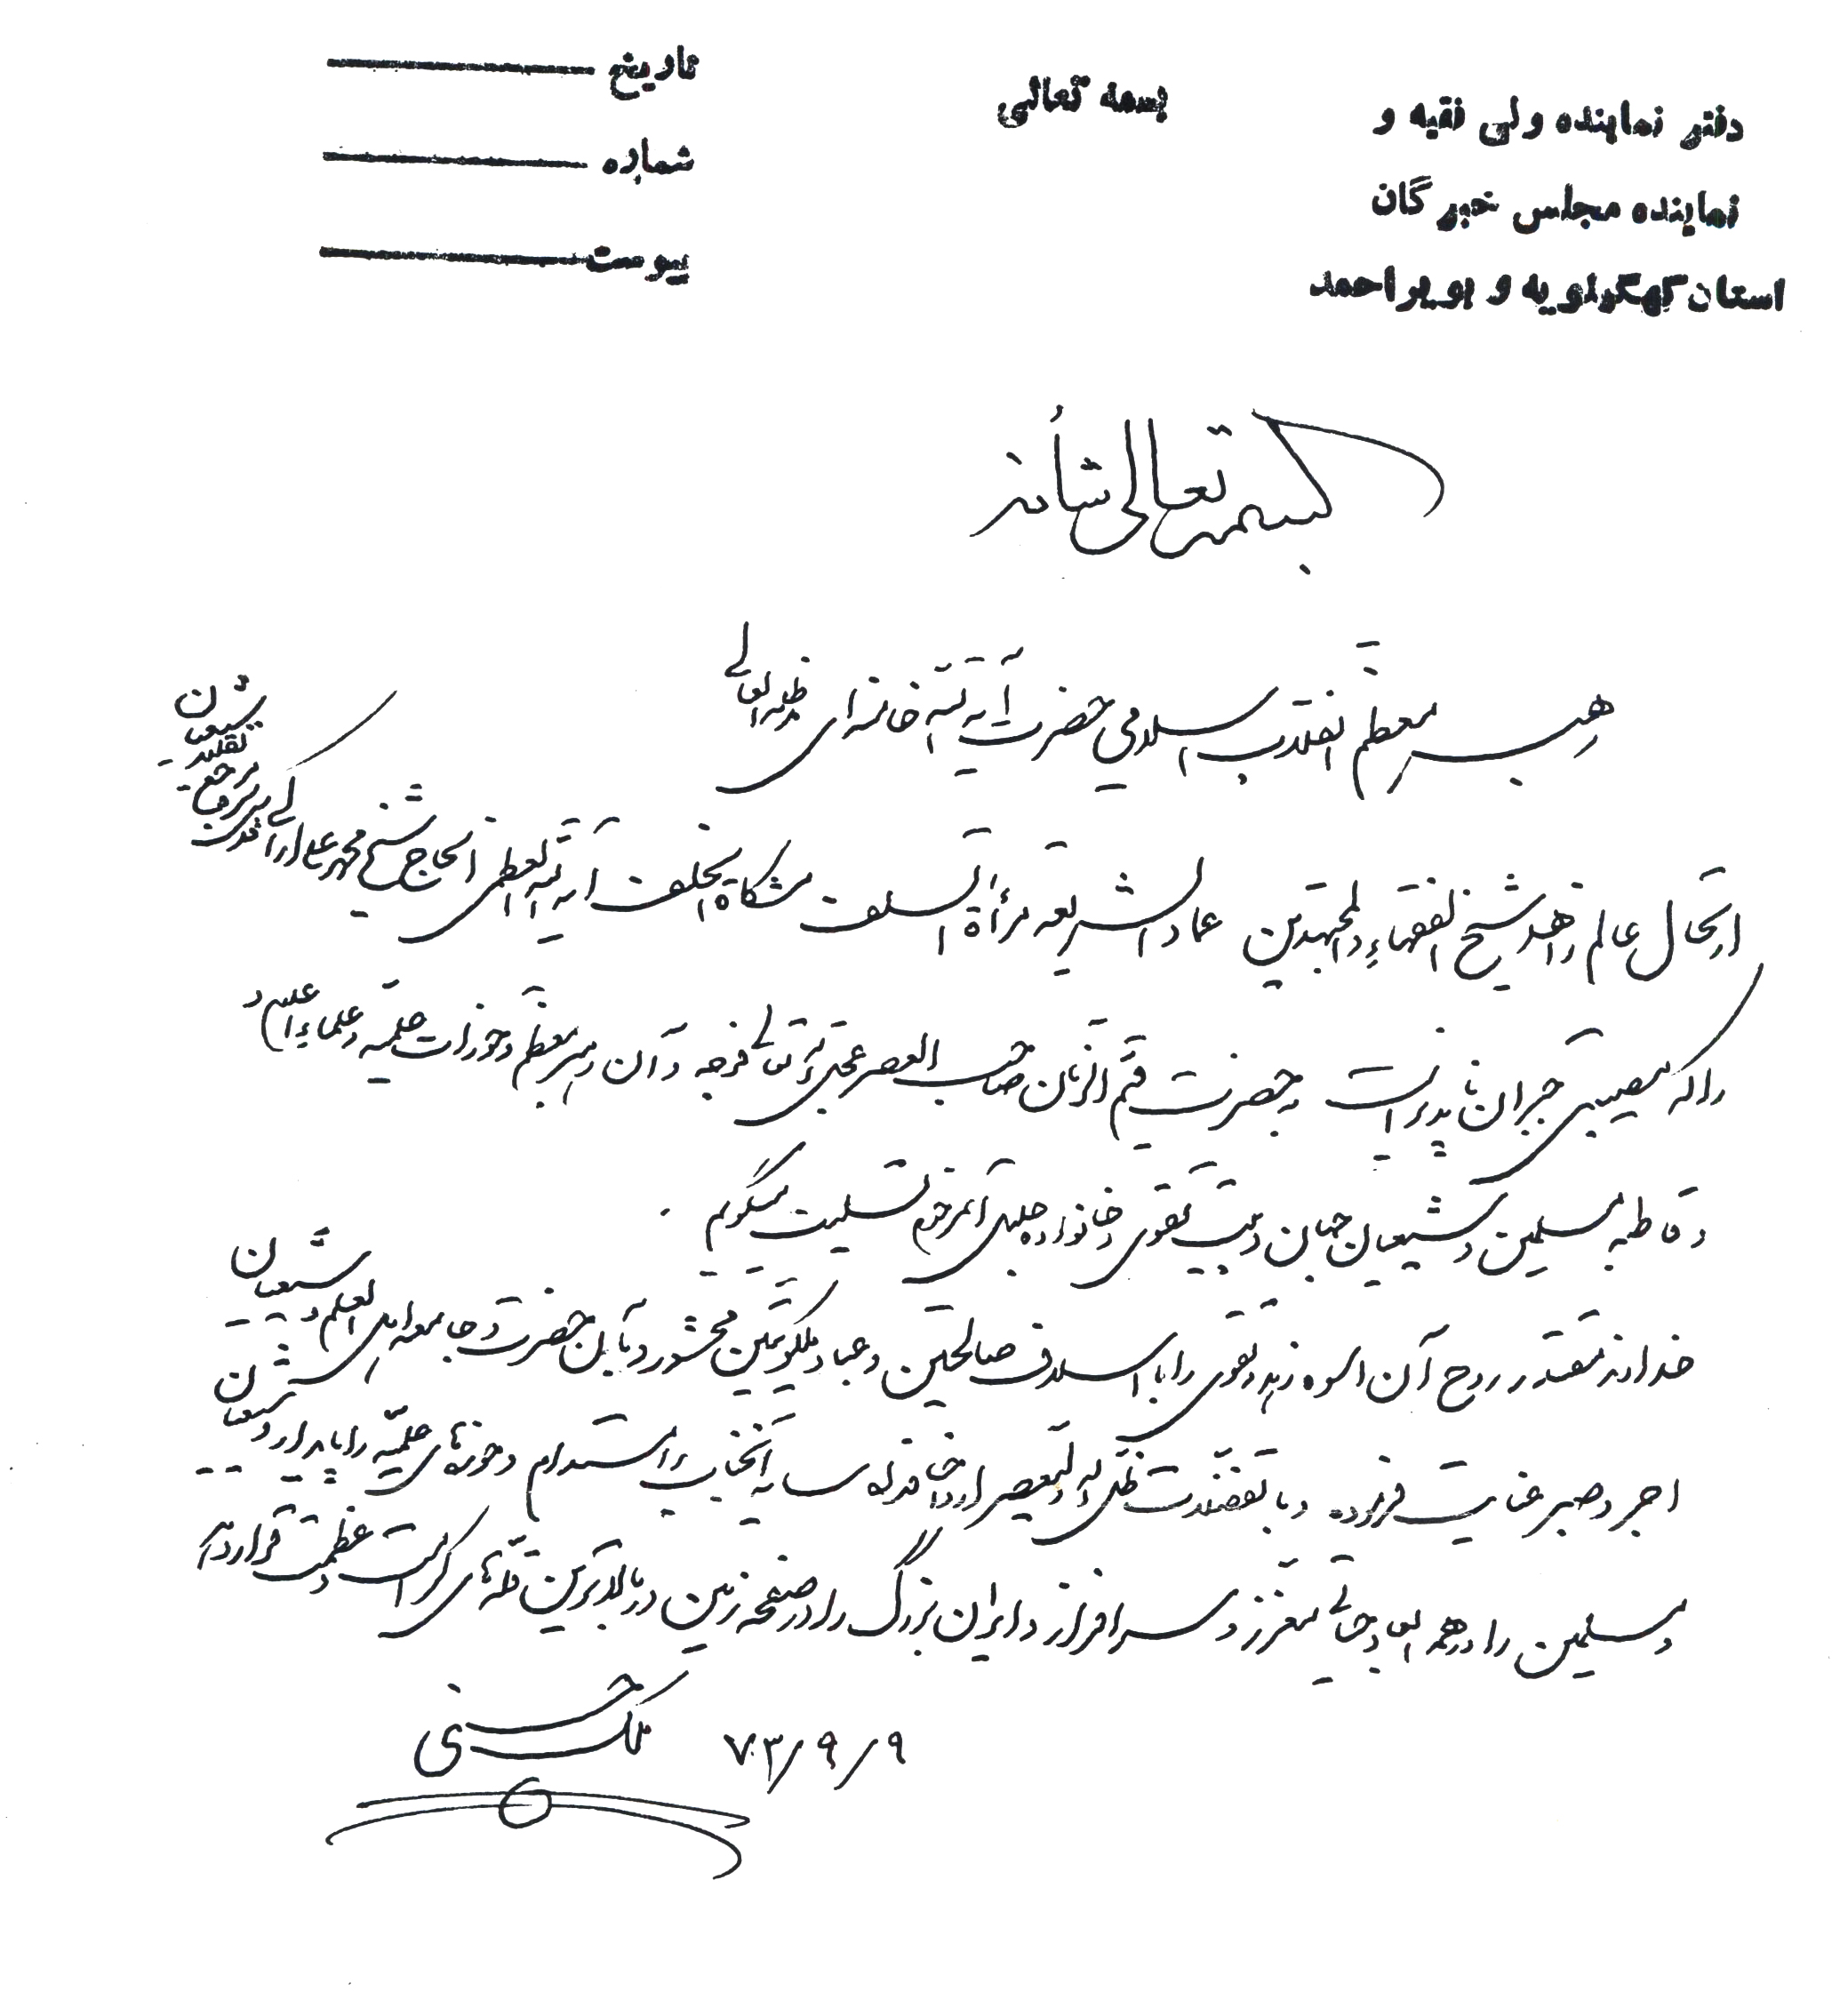 بسمه تعالی
دفتر نماینده ولی فقیه و
نماینده مجلس خبرگان
استان کهگیلویه و بویراحمد
تاریخ
شماره
پیوست
بسمه تعالی شأنه
رهبر معظم انقلاب اسلامی حضرت آیة الله خامنه‌ای مدظله العالی
ارتحال عالم زاهد شیخ الفقهاء و المجتهدین عماد الشریعه مرأة السلف مشکاة الخلف آیة الله العظمی الحاج شیخ محمد علی اراکی مرجع تقلید شیعیان
را که مصیبتی جبران ناپذیر است به حضرت قیّم الزمان صاحب العصر عجل الله تعالی فرجه و آن رهبر معظّم و حوزات علمیّه و علماء اعلام
و قاطبه مسلمین و شیعیان جهان و بیت تقوی و خانواده جلیل آنمرحوم تسلیت میگویم.
خداوند مقتدر روح آن اسوه زهد و تقوی را با اسلاف صالحین و عباد ملکوتیّین محشور و بآن حضرت و جامعه اهل العلم و شیعیان
اجر و صبر عنایت فرموده و با تفضّلات ولی العصر ارواحنا فداه سایه آنجناب را مستدام و حوزه‌های علمیّه را پایدار و شیعیان
و مسلمین را در همه ابعاد حیاتی معزّز و سرافراز و ایران بزرگ را در صفحه زمین در بالاترین قلّه‌های کرامت و عظمت قرار دهد
۷۳/۹/۹ ملک حسینی